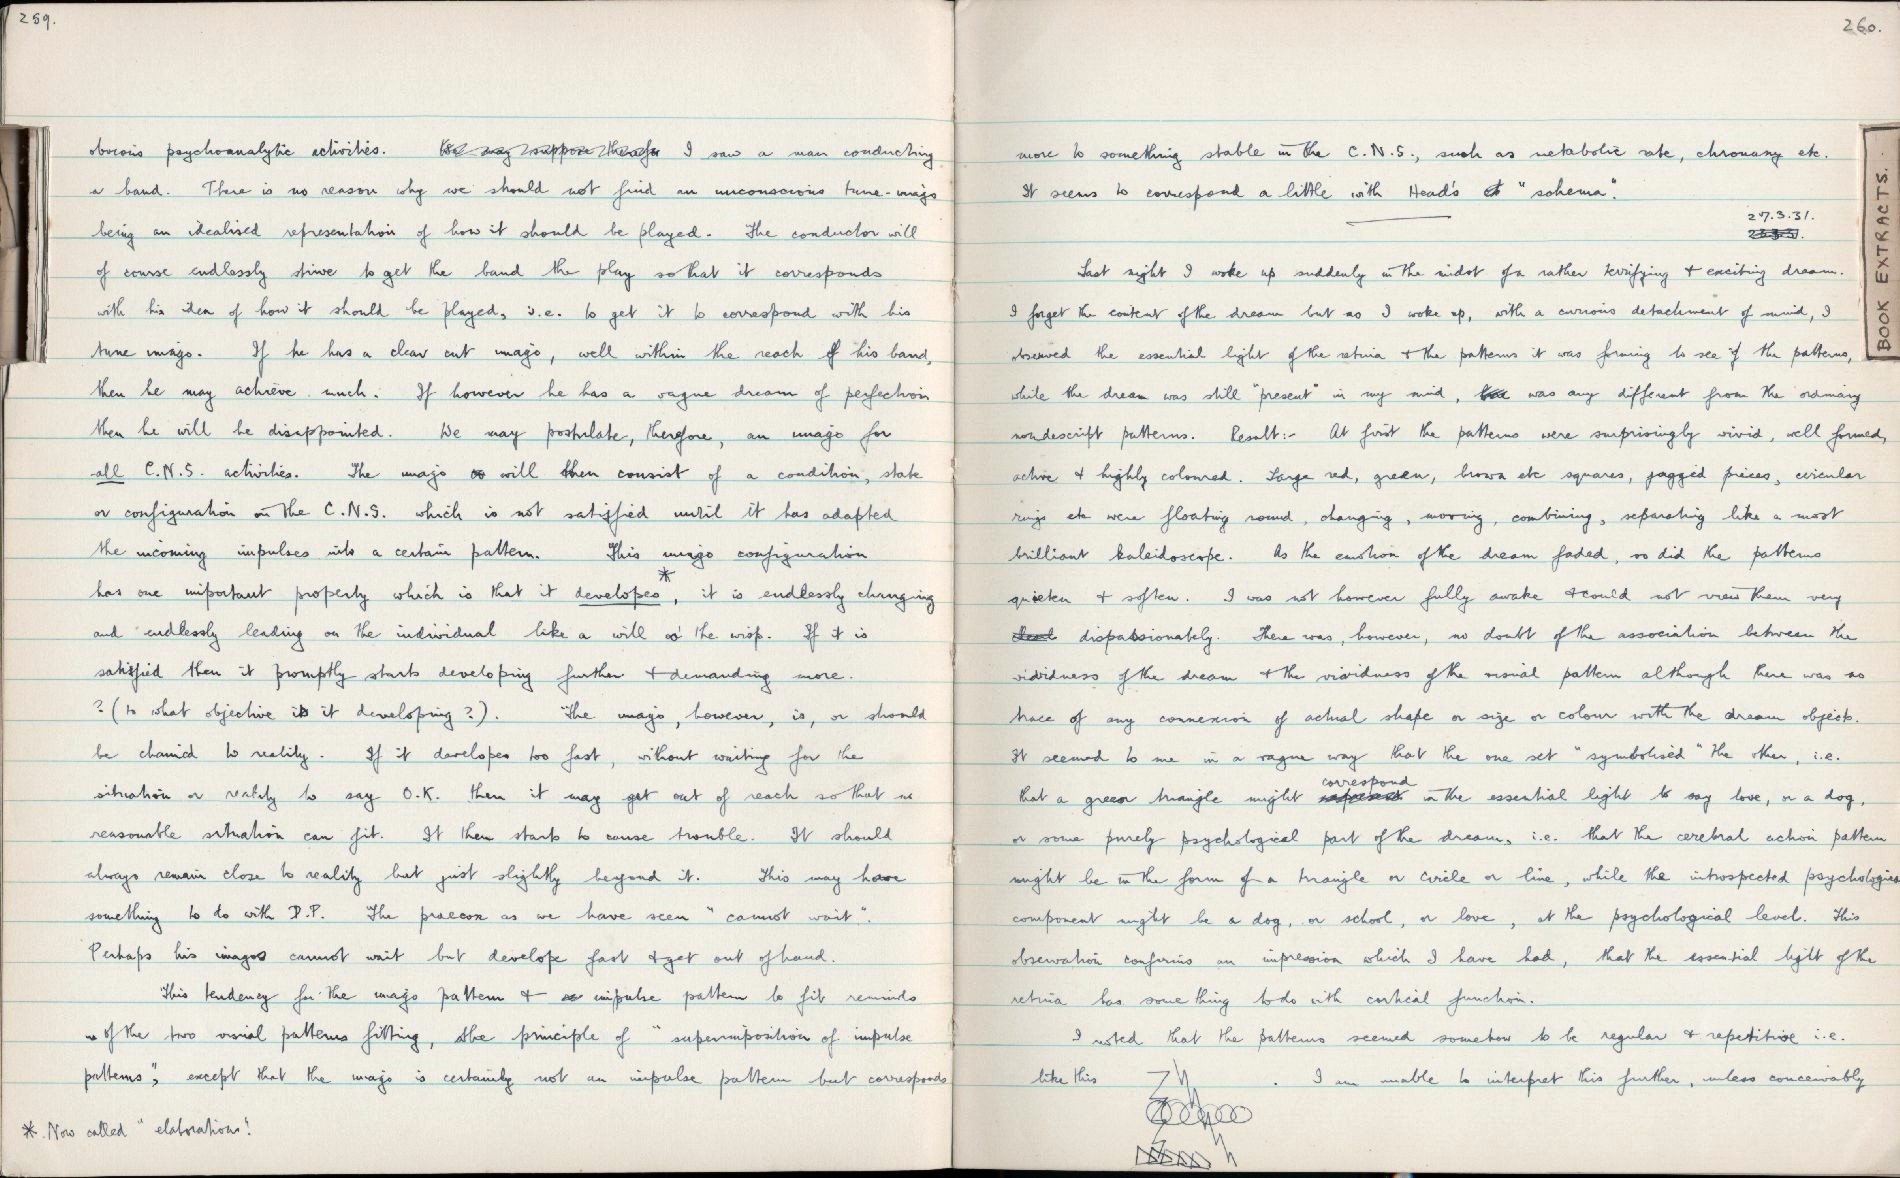 259.
obvious psychoanalytic activities. We may suppose therefor I saw a man conducting
a band. There is no reason why we should not find an unconscious tune-imago
being an idealised representation of how it should be played. The conductor will
of course endlessly strive to get the band the play so that it corresponds
with his idea of how it should be played, i.e. to get it to correspond with his
tune imago. If he has a clear cut imago, well within the reach of his band,
then he may achieve much. If however he has a vague dream of perfection
then he will be disappointed. We may postulate, therefore, an imago for
all C.N.S. activities. The imago will then consist of a condition, state
or configuration in the C.N.S. which is not satisfied until it has adapted
the incoming impulses into a certain pattern. This imago configuration
has one important property which is that it developes*, it is endlessly changing
and endlessly leading on the individual like a will o' the wisp. If it is
satisfied then it promptly starts developing further & demanding more.
? (to what objective is it developing?). The imago, however, is, or should
be chained to reality. If it developes too fast, without waiting for the
situation or reality to say O.K. then it may get out of reach so that no
reasonable situation can fit. It then starts to cause trouble. It should
always remain close to reality but just slightly beyond it. This may have
something to do with D.P. The praecox as we have seen "cannot wait".
Perhaps his imagos cannot wait but develope fast & get out of hand.
This tendency for the imago pattern & impulse pattern to fit reminds
us of the two visual patterns fitting, the principle of "superimposition of impulse
patterns", except that the imago is certainly not an impulse pattern but corresponds
* Now called "elaborations".
260.
more to something stable in the C.N.S., such as metabolic rate, chronaxy etc.
It seems to correspond a little with Head's "schema".
27.3.31.
Last night I woke up suddenly in the midst of a rather terrifying & exciting dream.
I forget the content of the dream but as I woke up, with a curious detachment of mind, I
observed the essential light of the retina & the patterns it was forming to see if the patterns,
while the dream was still "present" in my mind, was any different from the ordinary
nondescript patterns. Result:- At first the patterns were surprisingly vivid, well formed,
active & highly coloured. Large red, green, brown etc squares, jagged pieces, circular
rings etc were floating round, changing, moving, combining, separating like a most
brilliant kaleidoscope. As the emotion of the dream faded, so did the patterns
quieten & soften. I was not however fully awake & could not view them very
dispassionately. There was, however, no doubt of the association between the
vividness of the dream & the vividness of the visual pattern although there was no
trace of any connexion of actual shape or size or colour with the dream objects.
It seemed to me in a vague way that the one set "symbolised" the other, i.e.
that a green triangle might correspond in the essential light to say love, or a dog,
or some purely psychological part of the dream, i.e. that the cerebral action pattern
might be in the form of a triangle or circle or line, while the introspected psychological
component might be a dog, or school, or love, at the psychological level. This
observation confirms an impression which I have had, that the essential light of the
retina has something to do with cortical function.
I noted that the patterns seemed somehow to be regular & repetitive i.e.
like this . I am unable to interpret this further, unless conceivably
BOOK EXTRACTS.